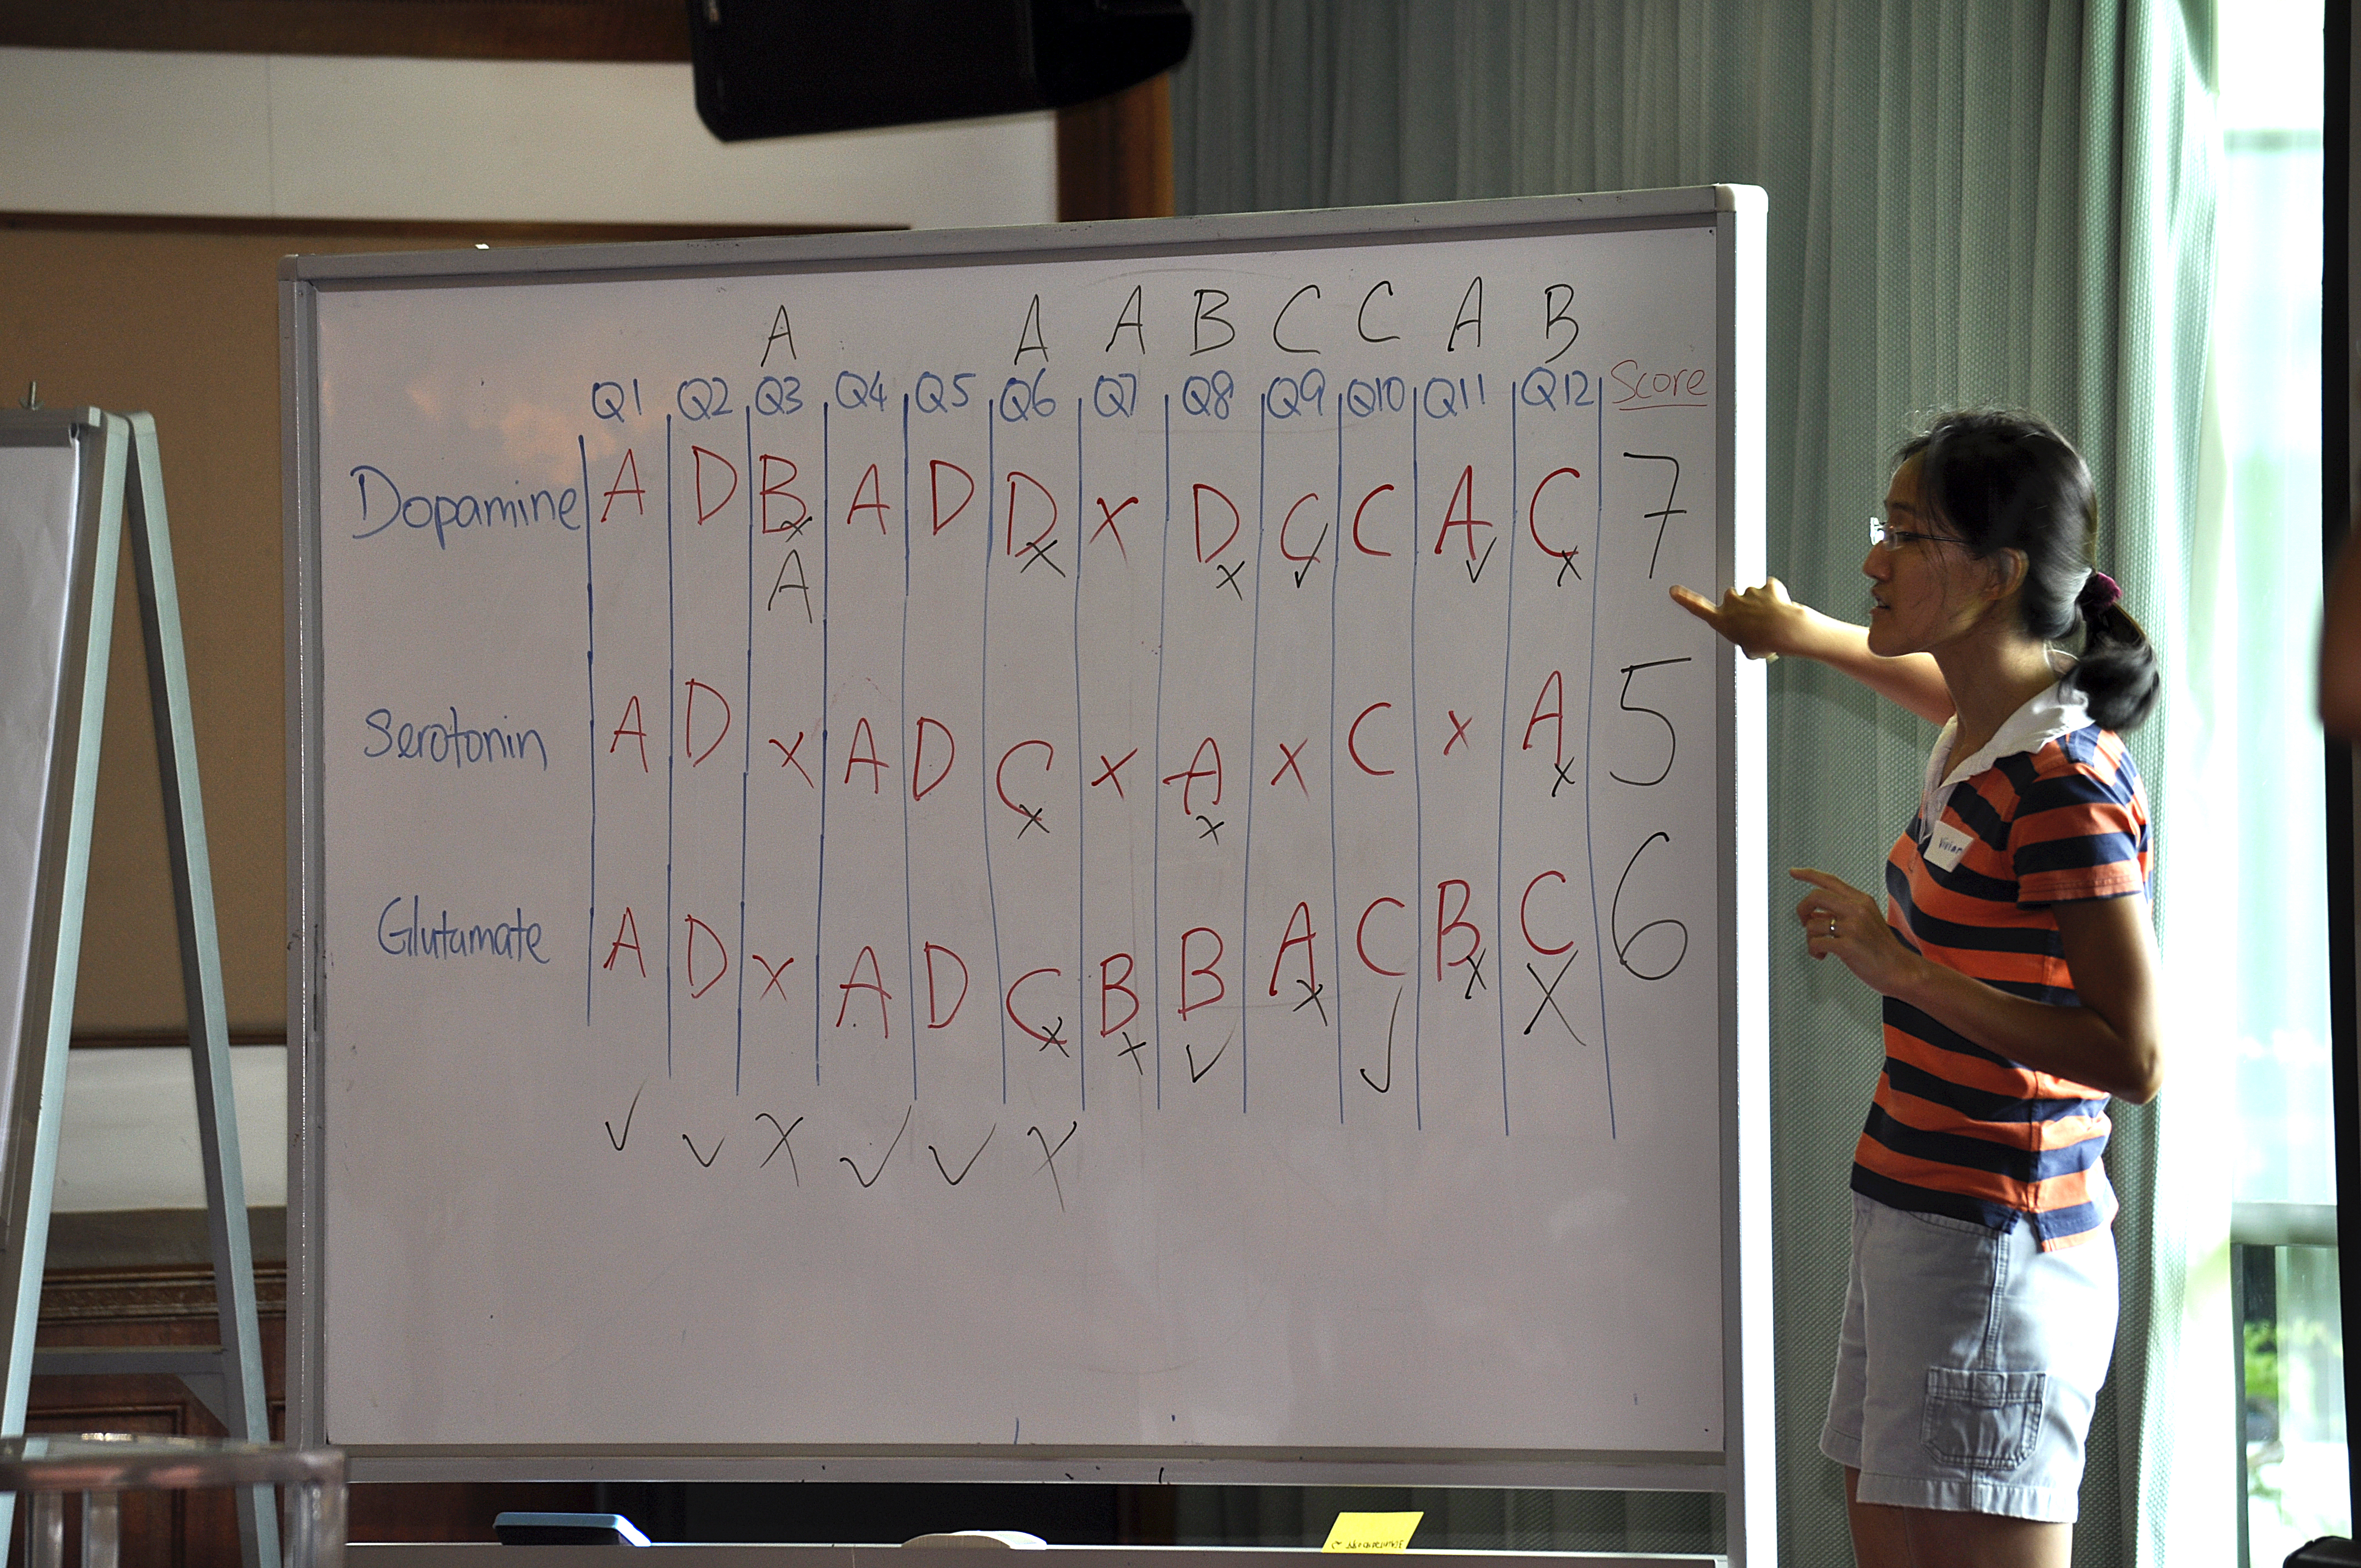 A A A B C C A B
Q1 Q2 Q3 Q4 Q5 Q6 Q7 Q8 Q9 Q10 Q11 Q12 Score
Dopamine A D B A D D X D C C A C 7
x x x ✓ ✓ x
A
Serotonin A D x A D C x A x C x A 5
x x x
Glutamate A D x A D C B B A C B C 6
x x ✓ x ✓ x X
✓ ✓ X ✓ ✓ X
Vivian